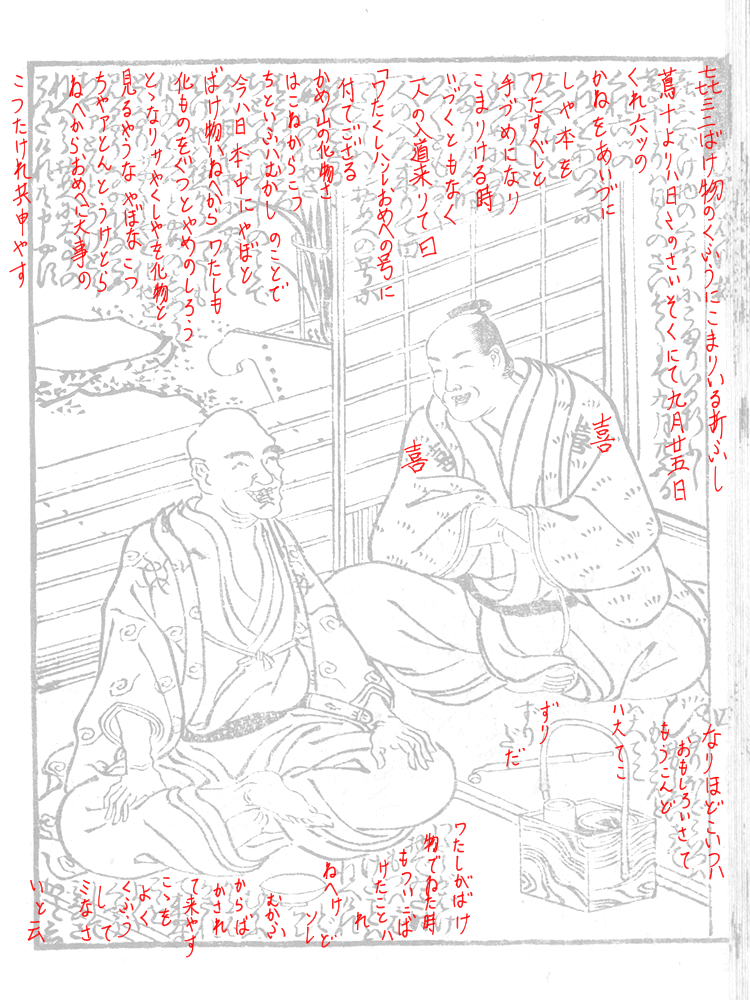 㐂三二ばけ物のくふうにこまりいる折ふし
蔦十より八日〻のさいそくにて九月廿五日
くれ六ッの
かねをあいづに
しゃ本を
ワたすべしと
手づめになり
こまりける時
いづくともなく
一人の入道来りて曰
「ワたくしハソレおめへの号に
付てござる
かめ山の化物さ
はこねからこつ
ちといふハむかしのことで
今ハ日本中にやぼと
ばけ物ハねへからワたしも
化ものをぐつとやめのしろう
と〻なりサやくしゃを化物と
見るやうなやぼなこつ
ちゃァとんとうけとら
ねへからおめへに大事の
こつたけれ共申やす
喜
喜
なりほどこいつハ
おもしろいさて
もうこんど
ハ大てこ
ずり
だ
ワたしがばけ
物でねた時
もついこば
けたことハ
れ
ねへけど
ソレ
むかふ
からば
かされ
て来やす
こ〻を
よく
くふう
して
ミなさ
いと云